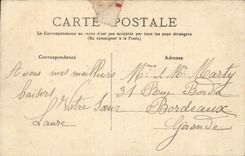 CARTE POSTALE
La Correspondance au recto n'est pas acceptée par tous les pays étrangers
(Se renseigner à la Poste)
Correspondance
Adresse
A vous mes meilleurs
baisers
Votre Sœur
Laure
Mme & Mr Marty
31 Rue Borde
Bordeaux
Gironde